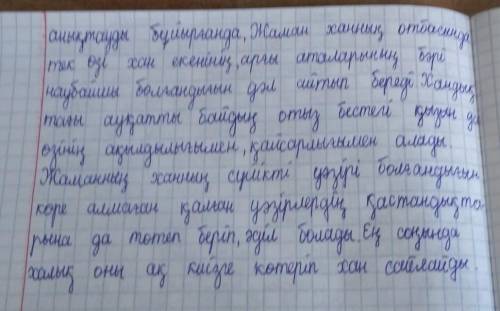 анықтауды бұйырғанда, Жаман ханның отбасында
тек өзі хан екенінің, арғы аталарының бәрі
наубайшы болғандығын дәл айтып береді. Хандық
тағы ауқатты байдың отыз бестегі қызын да
өзінің ақылдылығымен, қайсарлығымен алады.
Жаманның ханның сүйікті уәзірі болғандығын
көре алмаған қалған уәзірлердің қастандықта-
рына да төтеп беріп, әділ болады. Ең соңында
халық оны ақ киізге көтеріп хан сайлайды.